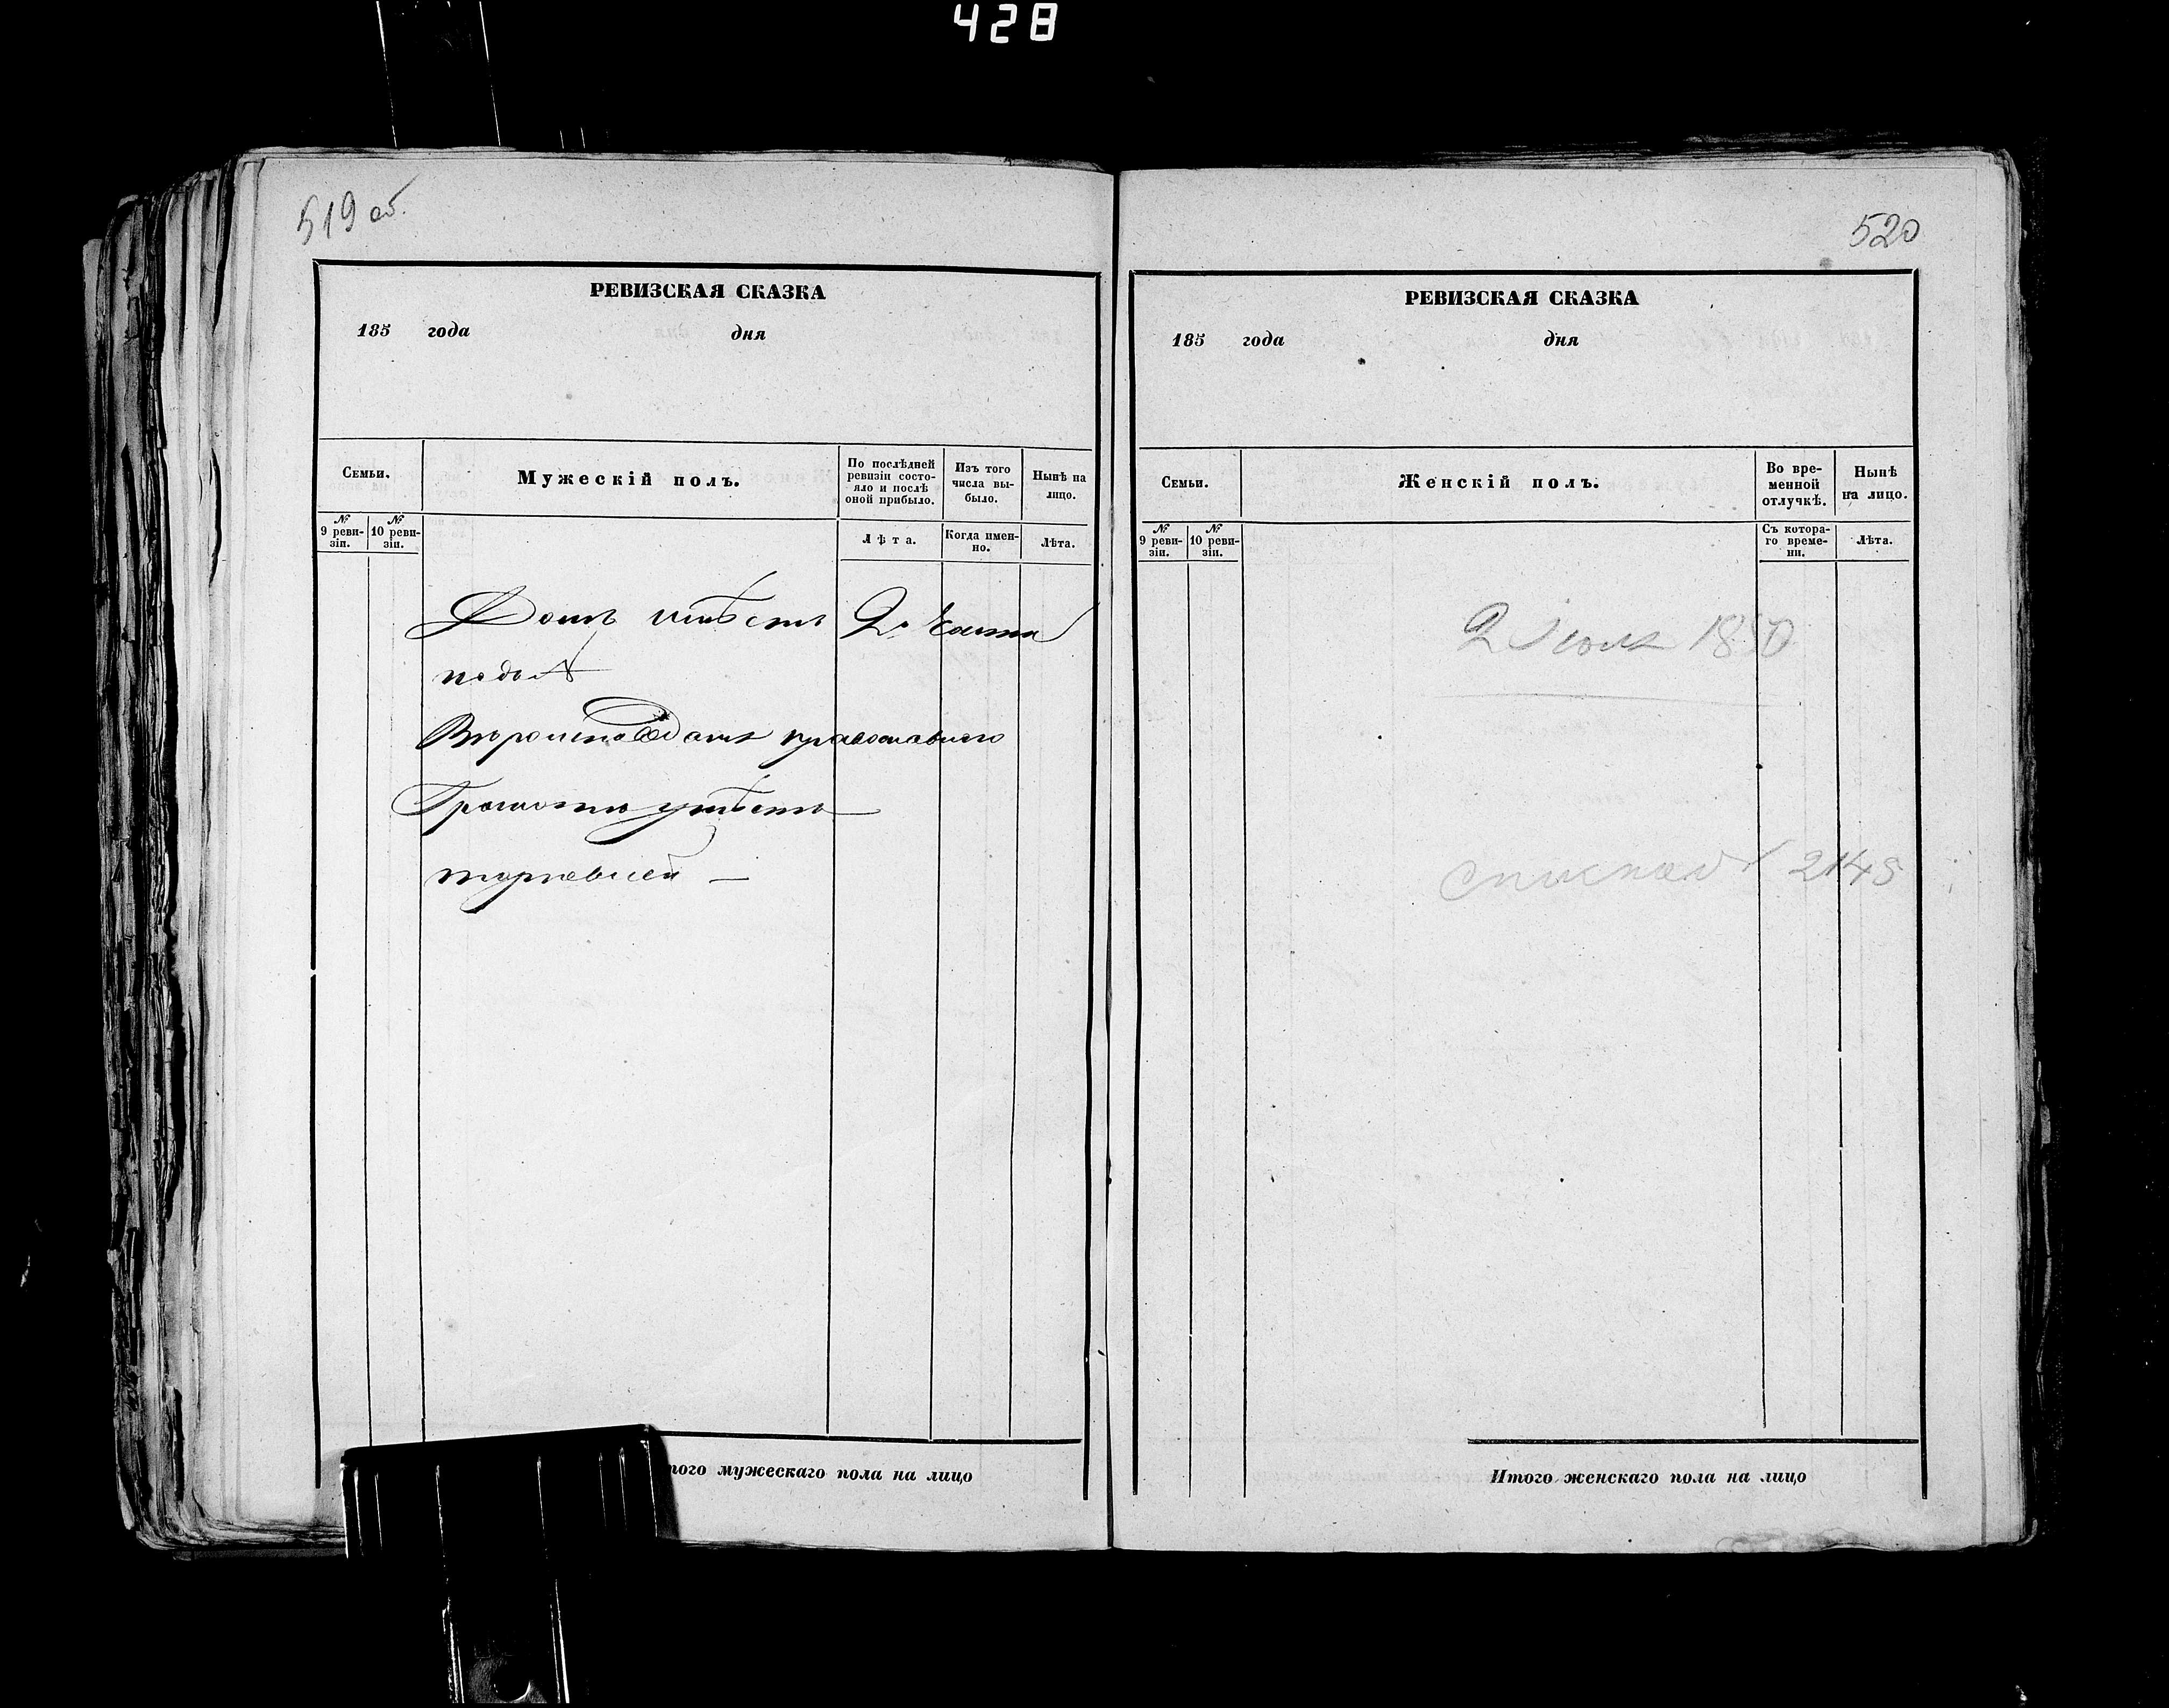 428
519 об.
РЕВИЗСКАЯ СКАЗКА
185 года дня
Семьи.
Мужескій полъ.
По послѣдней ревизіи состо-
яло и послѣ оной прибыло.
Изъ того числа вы-
было.
Нынѣ на лицо.
№ 9 реви-
зіи.
№ 10 реви-
зіи.
Лѣта.
Когда имен-
но.
Лѣта.
Домъ имѣетъ 2й Части
подъ №
Вѣроисповѣданія православнаго
Грамотѣ умѣетъ
торговлей —
того мужескаго пола на лицо
520
РЕВИЗСКАЯ СКАЗКА
185 года дня
Семьи.
Женскій полъ.
Во вре-
менной отлучкѣ.
Нынѣ на лицо.
№ 9 реви-
зіи.
№ 10 реви-
зіи.
Съ котора-
го време-
ни.
Лѣта.
2 Іюля 1850
2145
Итого женскаго пола на лицо